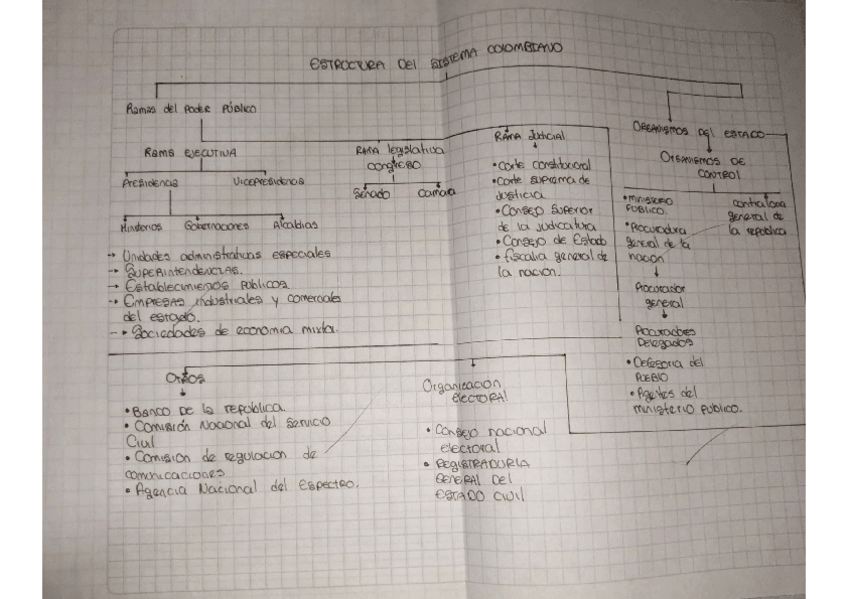 ESTRUCTURA DEL SISTEMA COLOMBIANO
Ramas del Poder Público
RAMA EJECUTIVA
Presidencia
Vicepresidencia
Ministerios
Gobernaciones
Alcaldias
→ Unidades administrativas especiales
→ SUPERintendencias.
→ Establecimientos Publicos.
→ EMPRESAS industriales y comerciales
del estado.
→ Sociedades de economia mixta.
RAMA legislativa
congreso
Senado
Camara
RAMA Judicial
• Corte constitucional
• Corte suprema de
Justicia
• Consejo Superior
de la judicatura
• Consejo de Estado
• fiscalia general de
la nacion.
ORGANISMOS DEL ESTADO
ORGANISMOS DE
CONTROL
• MINISTERIO
PUBLICO.
• Procuradura
general de la
nacion
Procurador
general
Procuradores
Delegados
• Defesoria del
PUEBLO
• Agentes del
ministerio publico.
contraloria
general de
la republica
Otros
• Banco de la republica.
• Comisión Nacional del Servicio
Civil
• Comision de regulacion de
comunicaciones
• Agencia Nacional del Espectro.
Organización
electoral
• Consejo nacional
electoral
• REGISTRADURIA
GENERAL DEL
ESTADO CIVIL